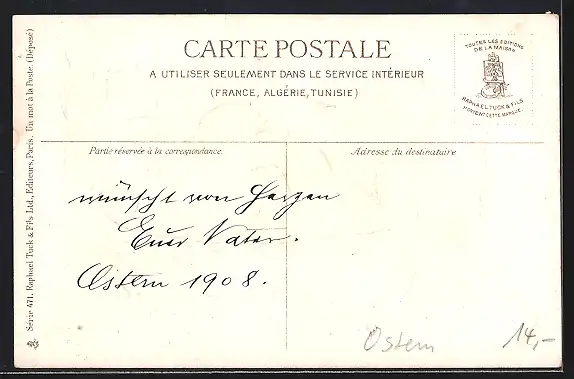 CARTE POSTALE
A UTILISER SEULEMENT DANS LE SERVICE INTÉRIEUR
(FRANCE, ALGÉRIE, TUNISIE)
TOUTES LES EDITIONS
DE LA MAISON
RAPHAEL TUCK & FILS
PORTENT CETTE MARQUE.
Partie réservée à la correspondance.
Adresse du destinataire
wünscht von Herzen
Euer Vater.
Ostern 1908.
Ostern
14,-
Série 471. Raphael Tuck & Fils Ltd., Editeurs, Paris. Un mot à la Poste. (Déposé)